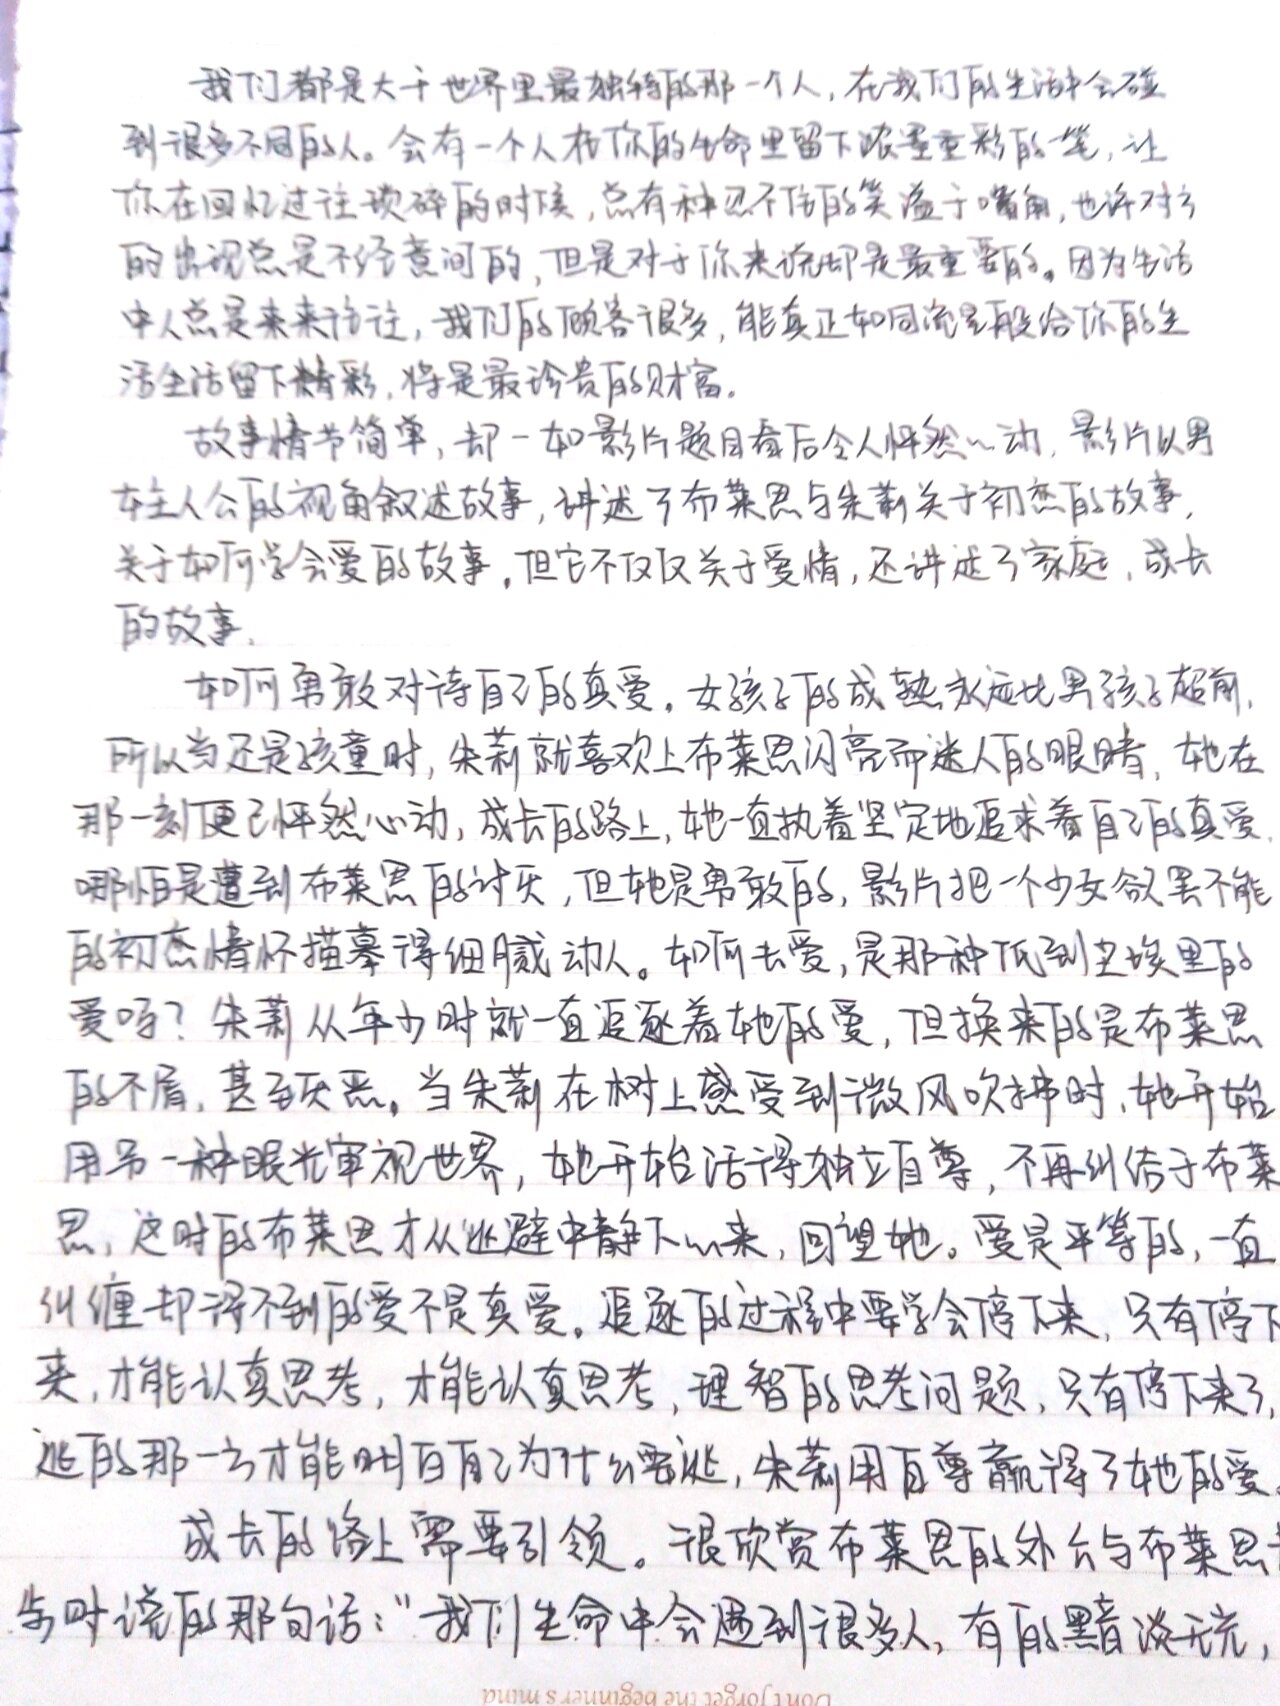 我们都是大千世界里最独特的那一个人,在我们的生活中会碰
到很多不同的人。会有一个人在你的生命里留下浓墨重彩的一笔,让
你在回忆过往琐碎的时候,总有种忍不住的笑溢于嘴角,也许对方
的出现总是不经意间的,但是对于你来说却是最重要的。因为生活
中人总是来来往往,我们的顾客很多,能真正如同流星般给你的生
活生活留下精彩,将是最珍贵的财富。
故事情节简单,却一如影片题目看后令人怦然心动,影片以男
女主人公的视角叙述故事,讲述了布莱恩与朱莉关于初恋的故事,
关于如何学会爱的故事,但它不仅仅关于爱情,还讲述了家庭,成长
的故事,
如何勇敢对待自己的真爱。女孩子的成熟永远比男孩子超前,
所以当还是孩童时,朱莉就喜欢上布莱恩闪亮而迷人的眼睛,她在
那一刻便已怦然心动,成长的路上,她一直执着坚定地追求着自己的真爱,
哪怕是遭到布莱恩的讨厌,但她是勇敢的,影片把一个少女欲罢不能
的初恋情怀描摹得细腻动人。如何去爱,是那种低到尘埃里的
爱吗?朱莉从年少时就一直追逐着她的爱,但换来的是布莱恩
的不屑,甚至厌恶。当朱莉在树上感受到微风吹拂时,她开始
用另一种眼光审视世界,她开始活得独立自尊,不再纠结于布莱
恩,这时的布莱恩才从逃避中静下心来,回望她。爱是平等的,一直
纠缠却得不到的爱不是真爱。追逐的过程中要学会停下来,只有停下
来,才能认真思考,才能认真思考,理智的思考问题,只有停下来了,
逃的那一方才能明白自己为什么要逃,朱莉用自尊赢得了她的爱。
成长的路上需要引领。很欣赏布莱恩的外公与布莱恩
时说的那句话:“我们生命中会遇到很多人,有的黯淡无光,
Don't forget the beginner's mind